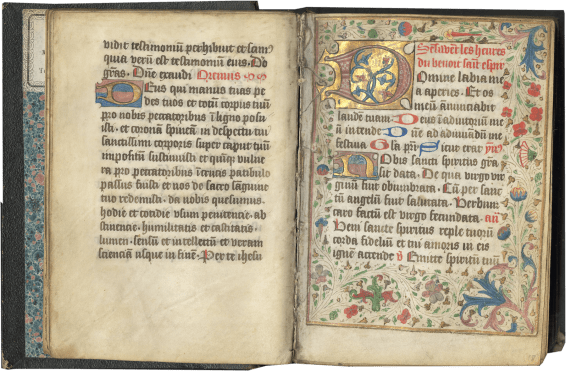 vidit testimoniū perhibuit et scim⁹
quia verū est testimoniū eius. Do
gr̄as. Dn̄e exaudi Oremus
Deus qui manus tuas pe
des tuos et totū corpus tuū
pro nobis peccatoribus ī ligno posu
isti. et coronā spineā in despectu tui
sanctissimi corporis super caput tuū
impositā sustinuisti et quīqȝ vulne
ra pro peccatoribus patibulo
passus fuisti et nos de sacro sāguine
tuo redemisti. da nobis quesumus
hodie et cotidie usum penitencie. ab
stinencie. humilitatis et castitatis.
lumen. sensū et intellectū et veram
scienciā usque in finē. Per te ihesu
Sēsuivēt les heures
du benoit sait esprit
Domine labia me
a aperies. Et os
meū annuciabit
laudē tuam. Deus ī adiutoriū me
ū intende Dn̄e ad adiuvādū me
festina Gl̄a pr̄i Sicut erat
Nobis sancti spiritus gra
sit data. De qua virgo vir
ginū fuit obumbrata. Cū per sanc
tū angelū fuit salutata. Verbum
caro factū est virgo fecundata. an̄
Veni sancte spiritus reple tuorū
corda fideliū et tui amoris in eis
ignē accende Emitte spiritū tuū